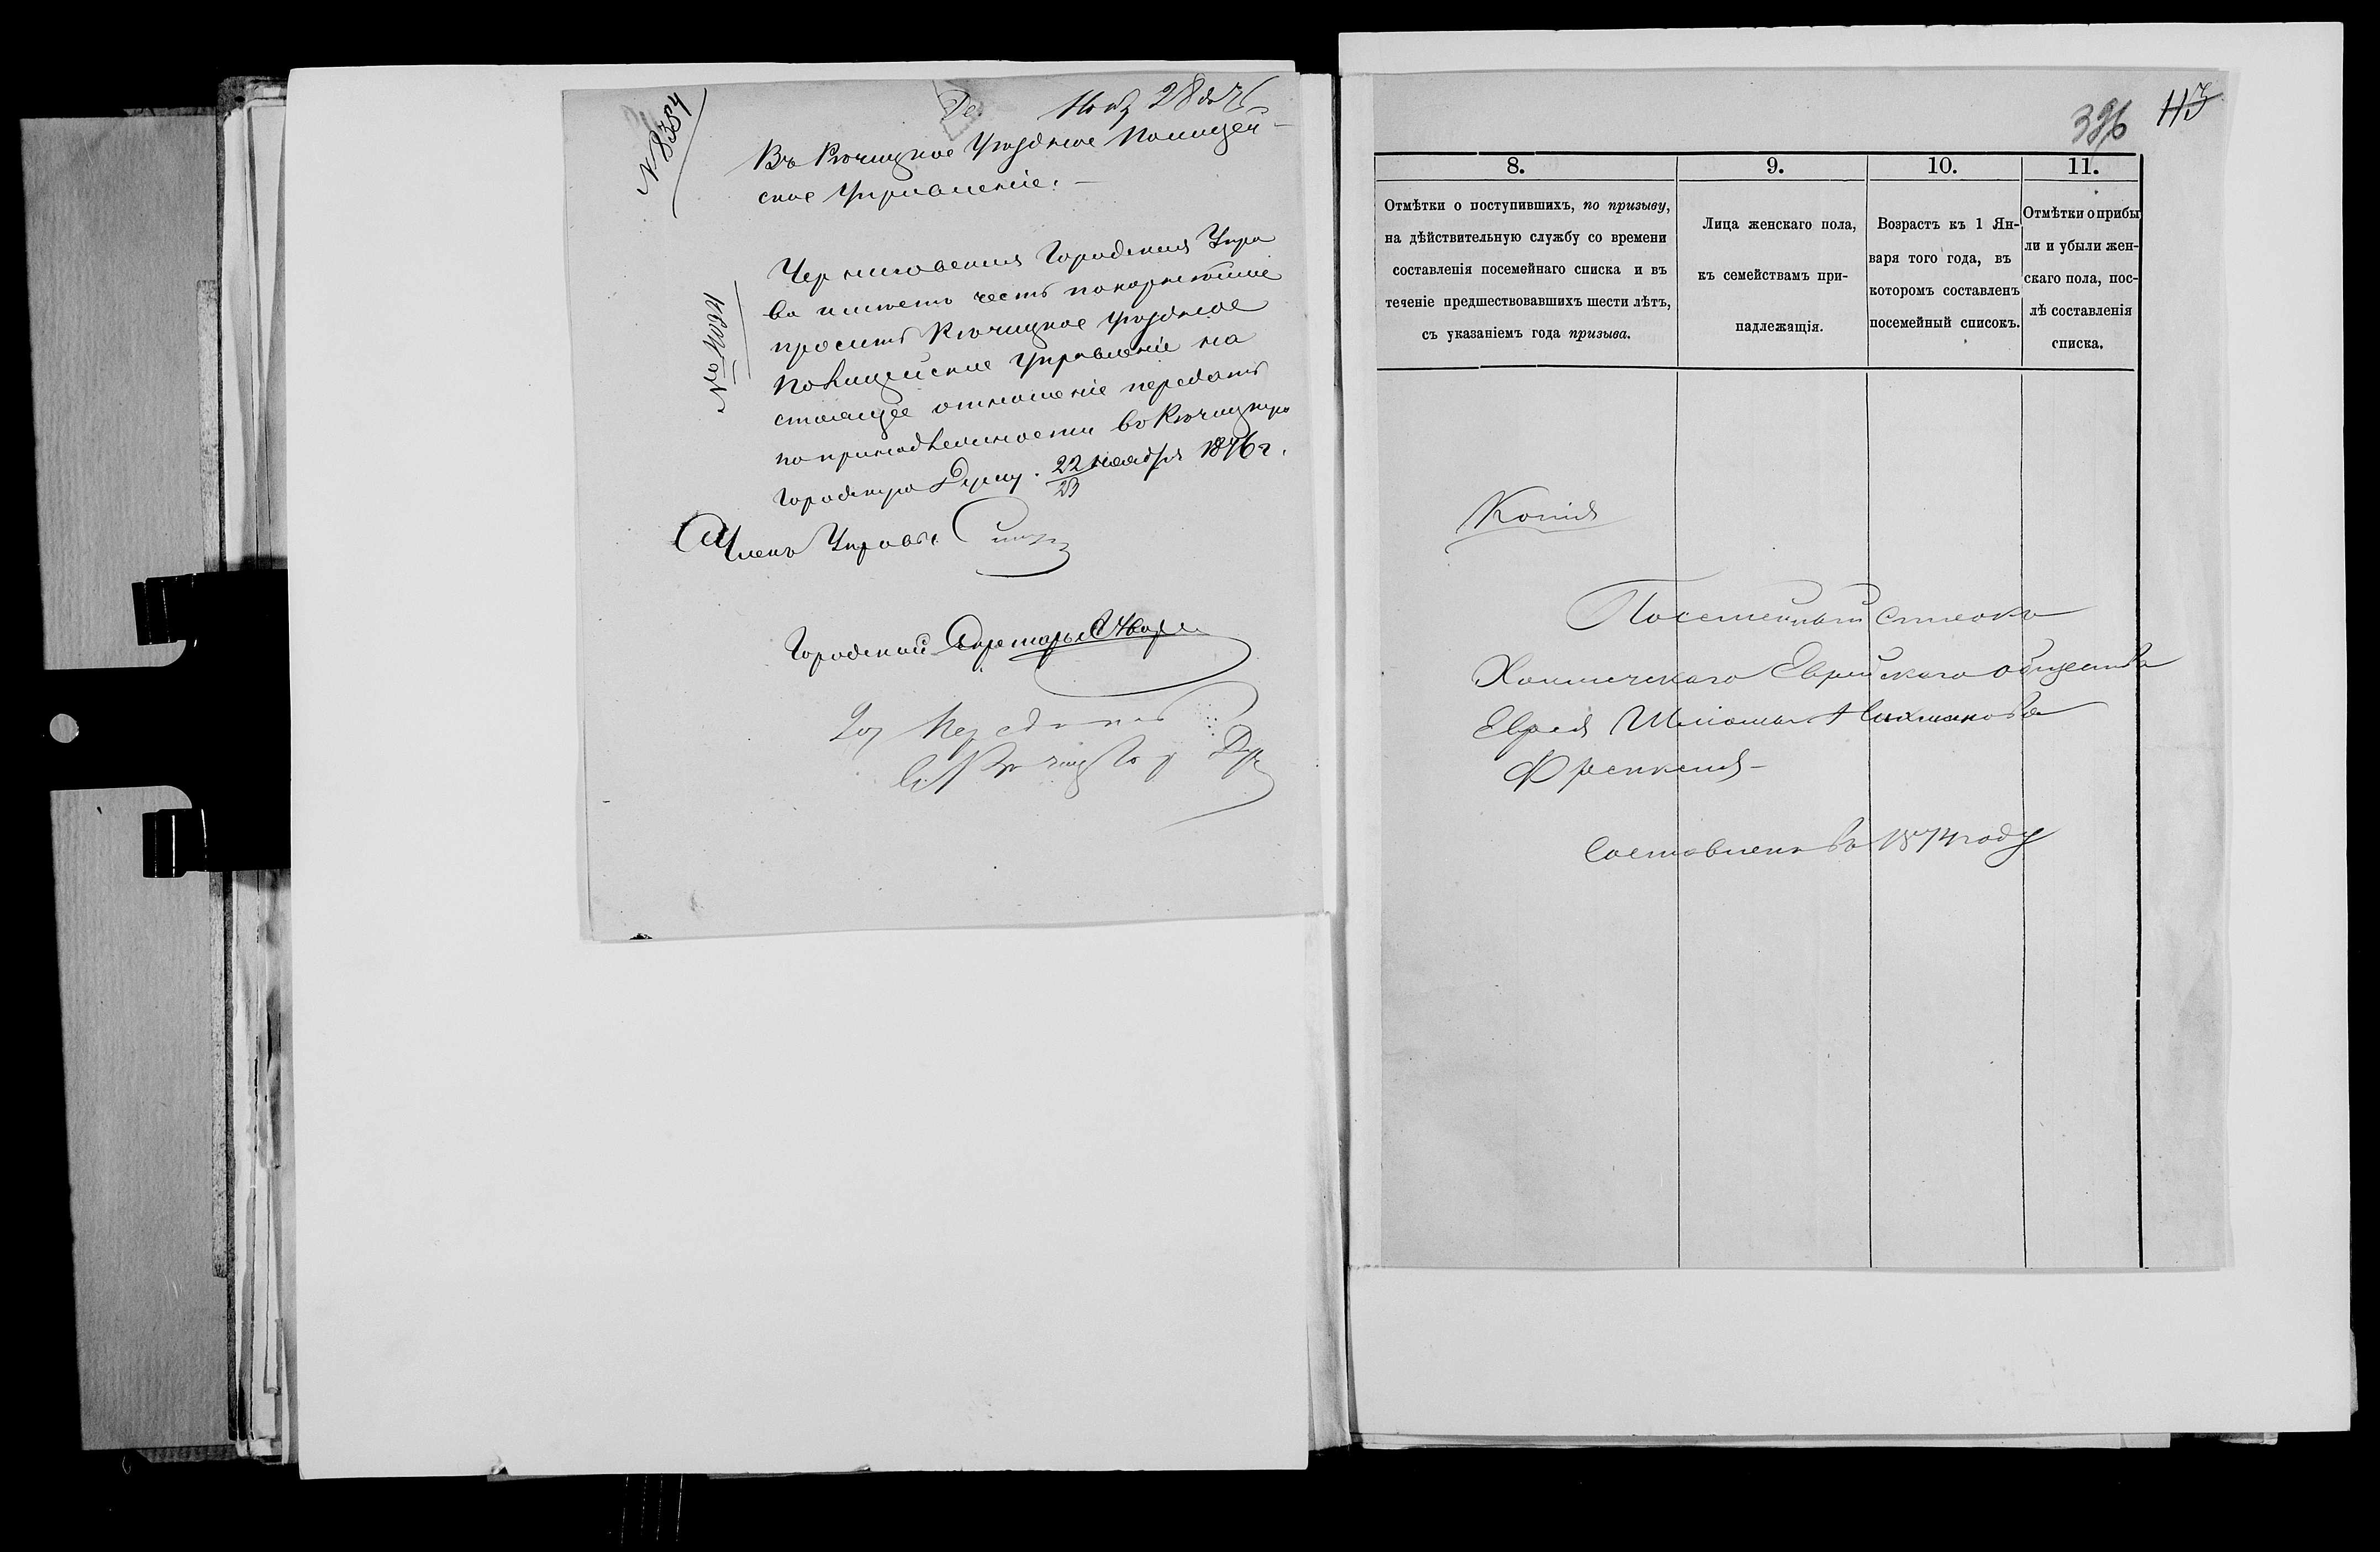 № 8384
Нояб 28 дня 76
Въ Рѣчицкое Уѣздное Полицей-
ское Управленіе. —
Черниговская Городская Упра
ва имѣетъ честь покорнѣйше
проситъ Рѣчицкое уѣздное
Полицейское Управленіе на
стоящее отношеніе передать
по принадлежности въ Рѣчицкую
Городскую Думу. 22/23 ноября 1876 г.
Членъ Управы
Городской Секретарь
396
8.
Отмѣтки о поступившихъ, по призыву,
на дѣйствительную службу со времени
составленія посемейнаго списка и въ
теченіе предшествовавшихъ шести лѣтъ,
съ указаніемъ года призыва.
9.
Лица женскаго пола,
къ семействамъ при-
надлежащія.
10.
Возрастъ къ 1 Ян-
варя того года, въ
которомъ составленъ
посемейный списокъ.
11.
Отмѣтки о прибы
ли и убыли жен-
скаго пола, пос-
лѣ составленія
списка.
Копія
Посемейный списокъ
Холмичскаго Еврейскаго общества
Еврея Шліомы Нахманова
Френкеля
Составленъ въ 1874 году